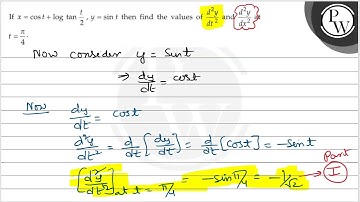 If x = cos t + log tan t/2, y = sin t then find the values of d²y/dt² and d²y/dx² at
t = π/4.
PW
Now consider y = Sint
⇒ dy/dt = cost
Now dy/dt = cost
d²y/dt² = d/dt [dy/dt] = d/dt [cost] = -sint
[d²y/dt²] at t = π/4 = -sin π/4 = -1/√2
Part
I